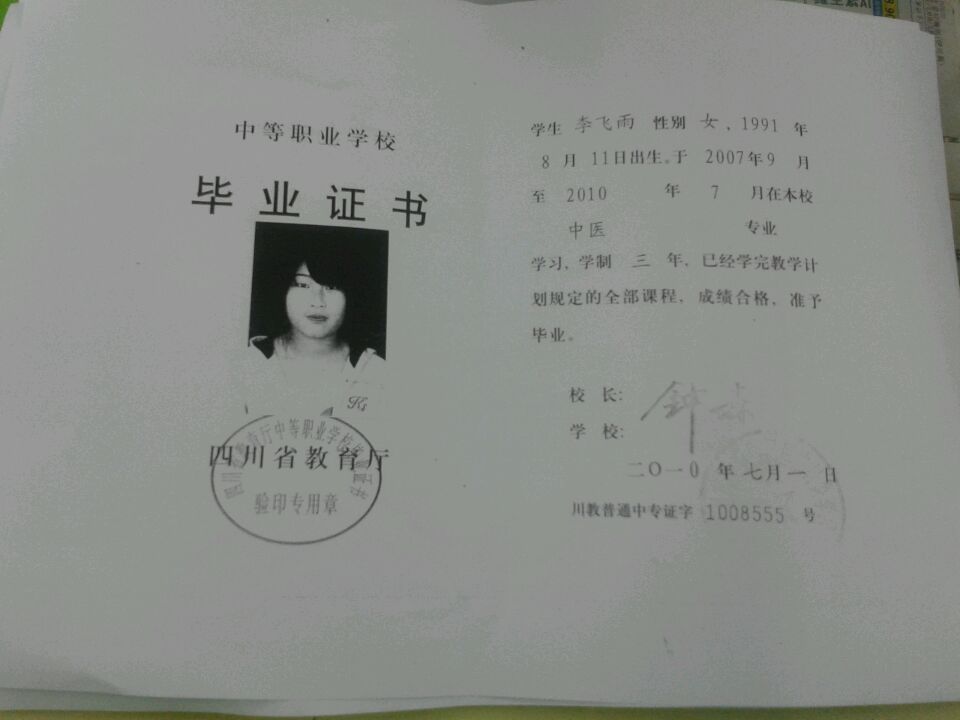 中等职业学校
毕业证书
四川省教育厅
验印专用章
学生 李飞雨 性别 女，1991 年
8 月 11日出生。于 2007年9 月
至 2010 年 7 月在本校
中医 专业
学习，学制 三 年，已经学完教学计
划规定的全部课程，成绩合格，准予
毕业。
校 长：
学 校：
二〇一0 年 七月 一 日
川教普通中专证字 1008555 号